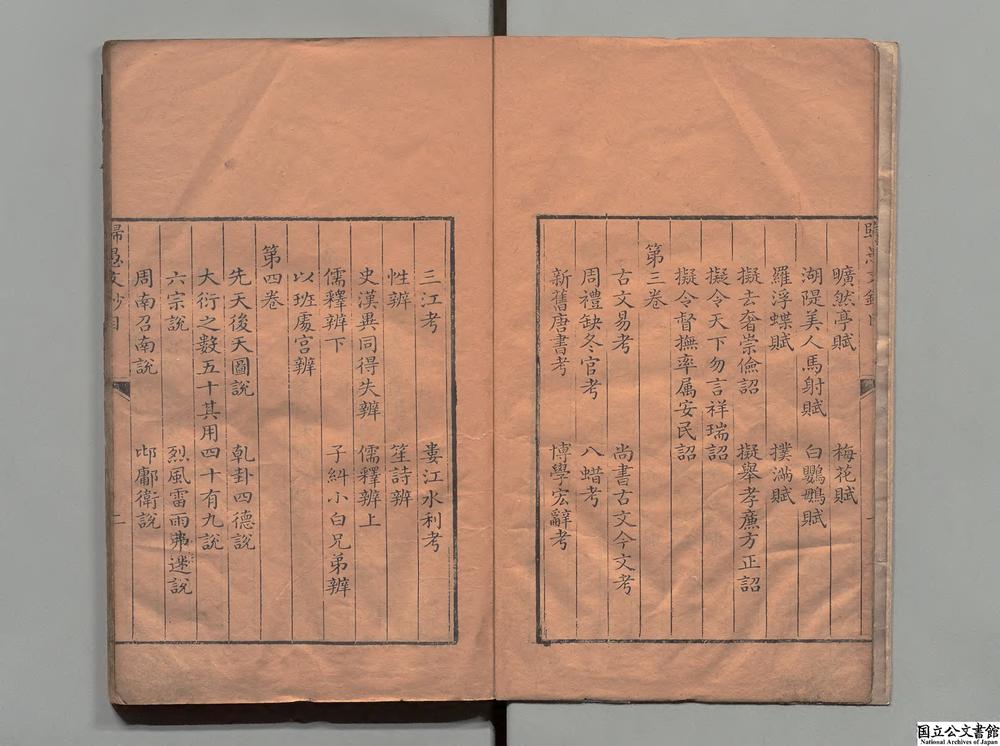 曠然亭賦　梅花賦
湖隄美人馬射賦　白鸚鵡賦
羅浮蝶賦　撲滿賦
擬去奢崇儉詔　擬舉孝廉方正詔
擬令天下勿言祥瑞詔
擬令督撫率属安民詔
第三卷
古文易考　尚書古文今文考
周禮缺冬官考　八蜡考
新舊唐書考　博學宏辭考
三江考　婁江水利考
性辨　笙詩辨
史漢異同得失辨　儒釋辨上
儒釋辨下　子糾小白兄弟辨
以班處宮辨
第四卷
先天後天圖說　乹卦四德說
大衍之数五十其用四十有九說
六宗說　烈風雷雨弗迷說
周南召南說　邶鄘衛說
歸愚文鈔目　二
国立公文書館
National Archives of Japan